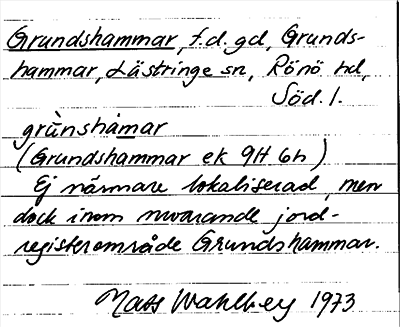 Grundshammar, f.d. gd, Grunds-
hammar, Lästringe sn, Rönö hd,
Söd. l.
grùnshàmar
(Grundshammar ek 9H 6h)
Ej närmare lokaliserad, men
dock inom nuvarande jord-
registerområde Grundshammar.
Mats Wahlberg 1973